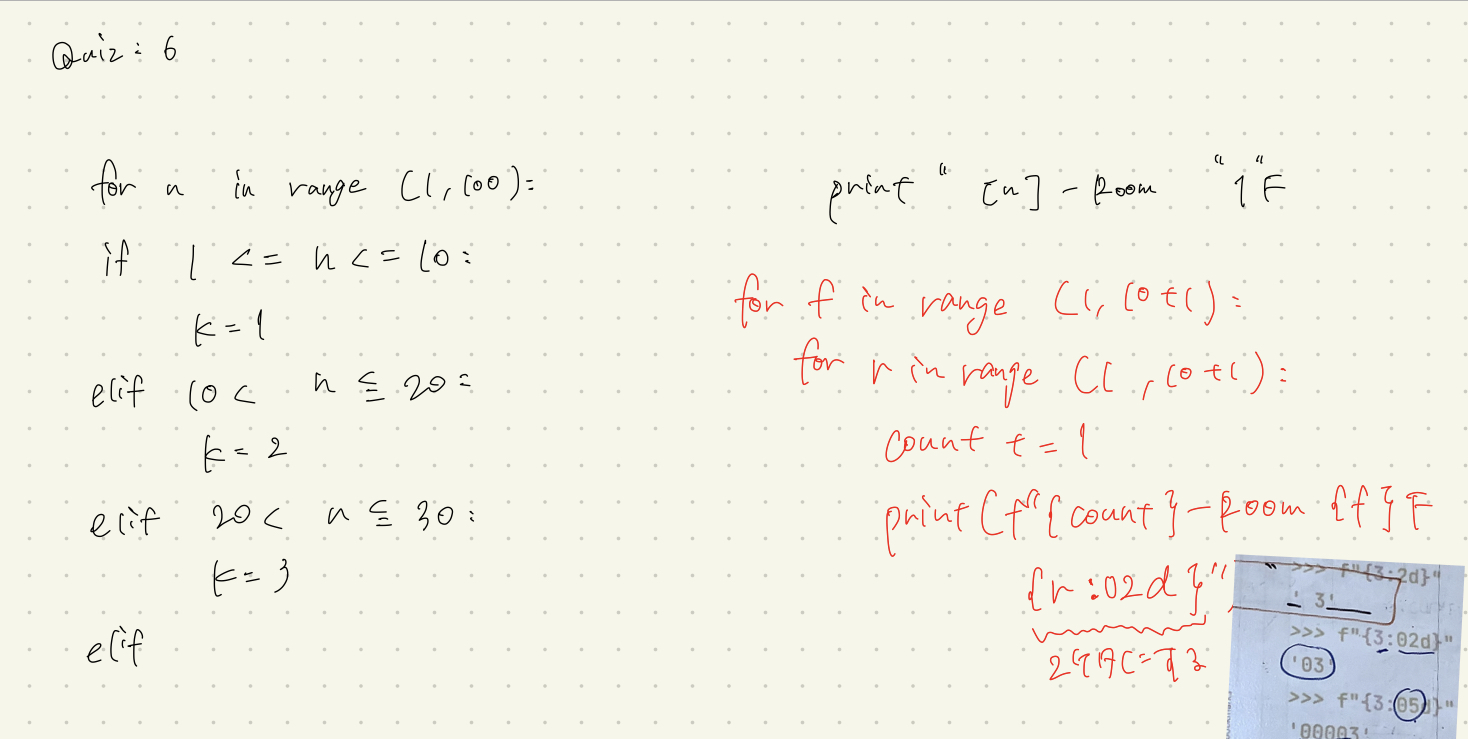 Quiz: 6
for n in range (1, 100):
if 1 <= n <= 10:
k = 1
elif 10 < n ≦ 20:
k = 2
elif 20 < n ≦ 30:
k = 3
elif
print " [n] - Room " 1 " F
for f in range (1, 10+1):
for r in range (1, 10+1):
count += 1
print(f"{count}-Room {f}F
{r:02d}"
>>> f"{3:2d}"
' 3'
>>> f"{3:02d}"
'03'
>>> f"{3:05d}"
'00003'